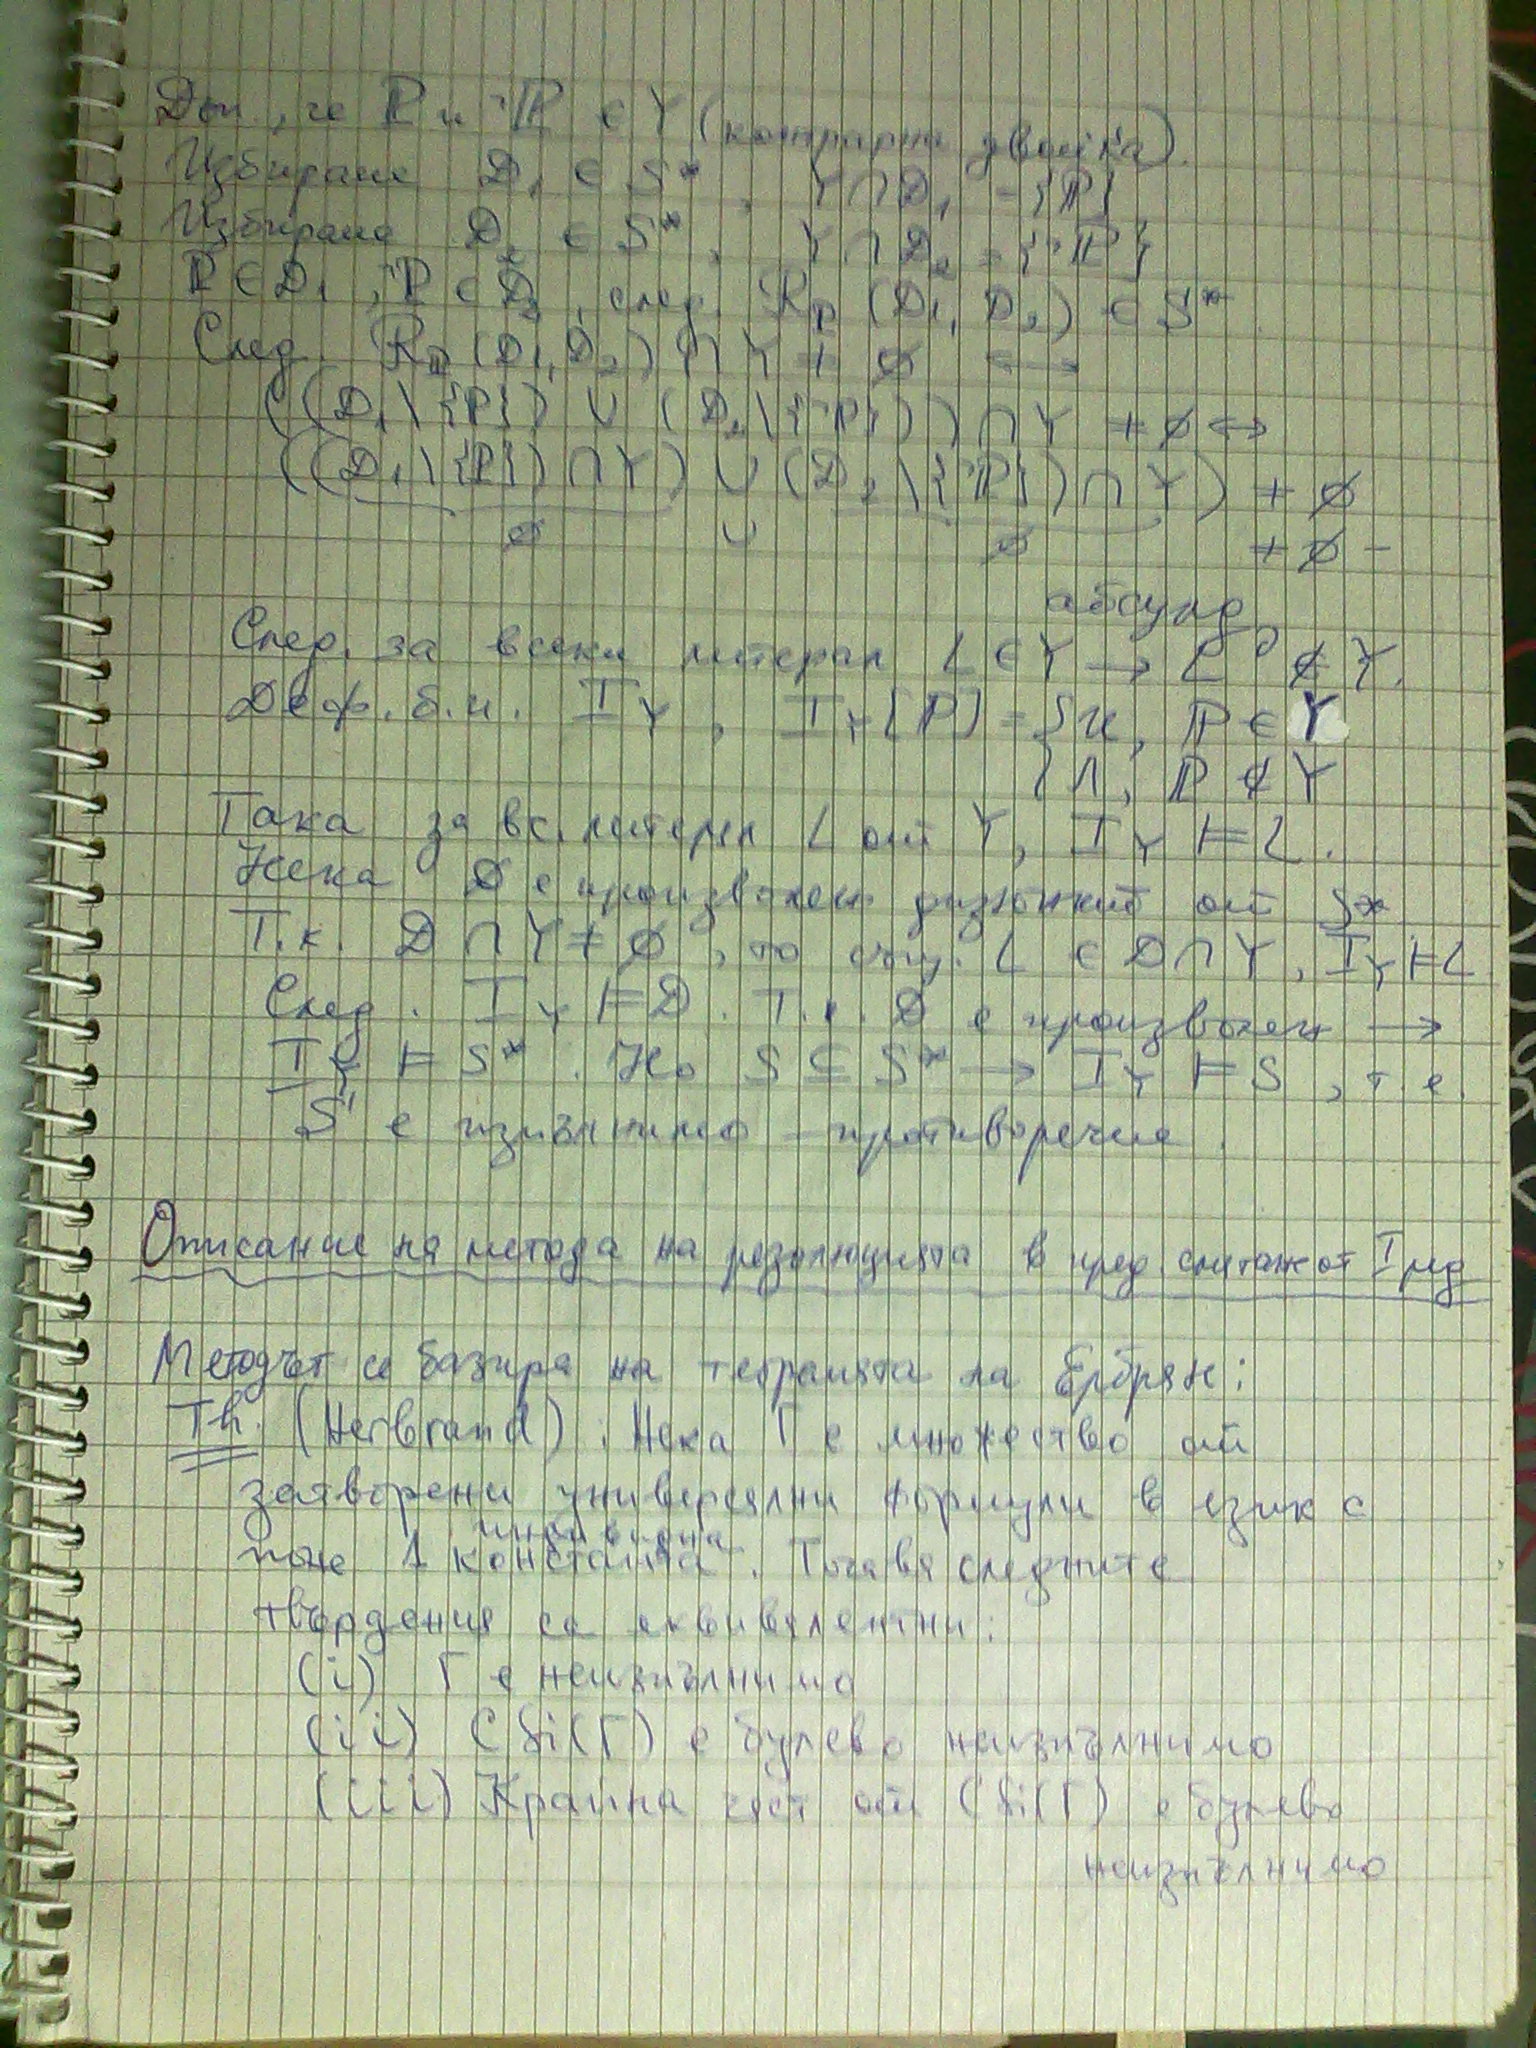 Доп., че ℙ и ¬ℙ ∈ Y (контрарна двойка).
Избираме D₁ ∈ S*, Y∩D₁ = {ℙ}
Избираме D₂ ∈ S*, Y∩D₂ = {¬ℙ}
ℙ∈D₁, ¬ℙ∈D₂, след. Rℙ (D₁, D₂) ∈ S*.
След. Rℙ (D₁, D₂) ∩ Y ≠ ∅ ↔
((D₁\{ℙ}) ∪ (D₂\{¬ℙ})) ∩ Y ≠ ∅ ↔
((D₁\{ℙ}) ∩ Y) ∪ (D₂\{¬ℙ}) ∩ Y) ≠ ∅
∅ ∪ ∅ ≠ ∅ –
абсурд
След. за всеки литерал L ∈ Y → L^∂ ∉ Y.
Деф. б.и. I_Y, I_Y[ℙ] = { И, ℙ ∈ Y
{ Л, ℙ ∉ Y
Така за вс. литерал L от Y, I_Y ⊨ L.
Нека D е произволен дизюнкт от S*
Т.к. D ∩ Y ≠ ∅, то L ∈ D∩Y, I_Y ⊨ L
След. I_Y ⊨ D. Т.к. D е произволен →
I_Y ⊨ S*. Но S ⊆ S* → I_Y ⊨ S, т.е.
S е изпълнимо – противоречие.
Описание на метода на резолюцията в пред. смятане от I ред
Методът се базира на теорията на Ербран:
Th. (Herbrand): Нека Γ е множество от
затворени универсални формули в език с
индивидна
поне 1 константа. Тогава следните
твърдения са еквивалентни:
(i) Γ е неизпълнимо
(ii) CSi(Γ) е булево неизпълнимо
(iii) Крайна част от CSi(Γ) е булево
неизпълнимо